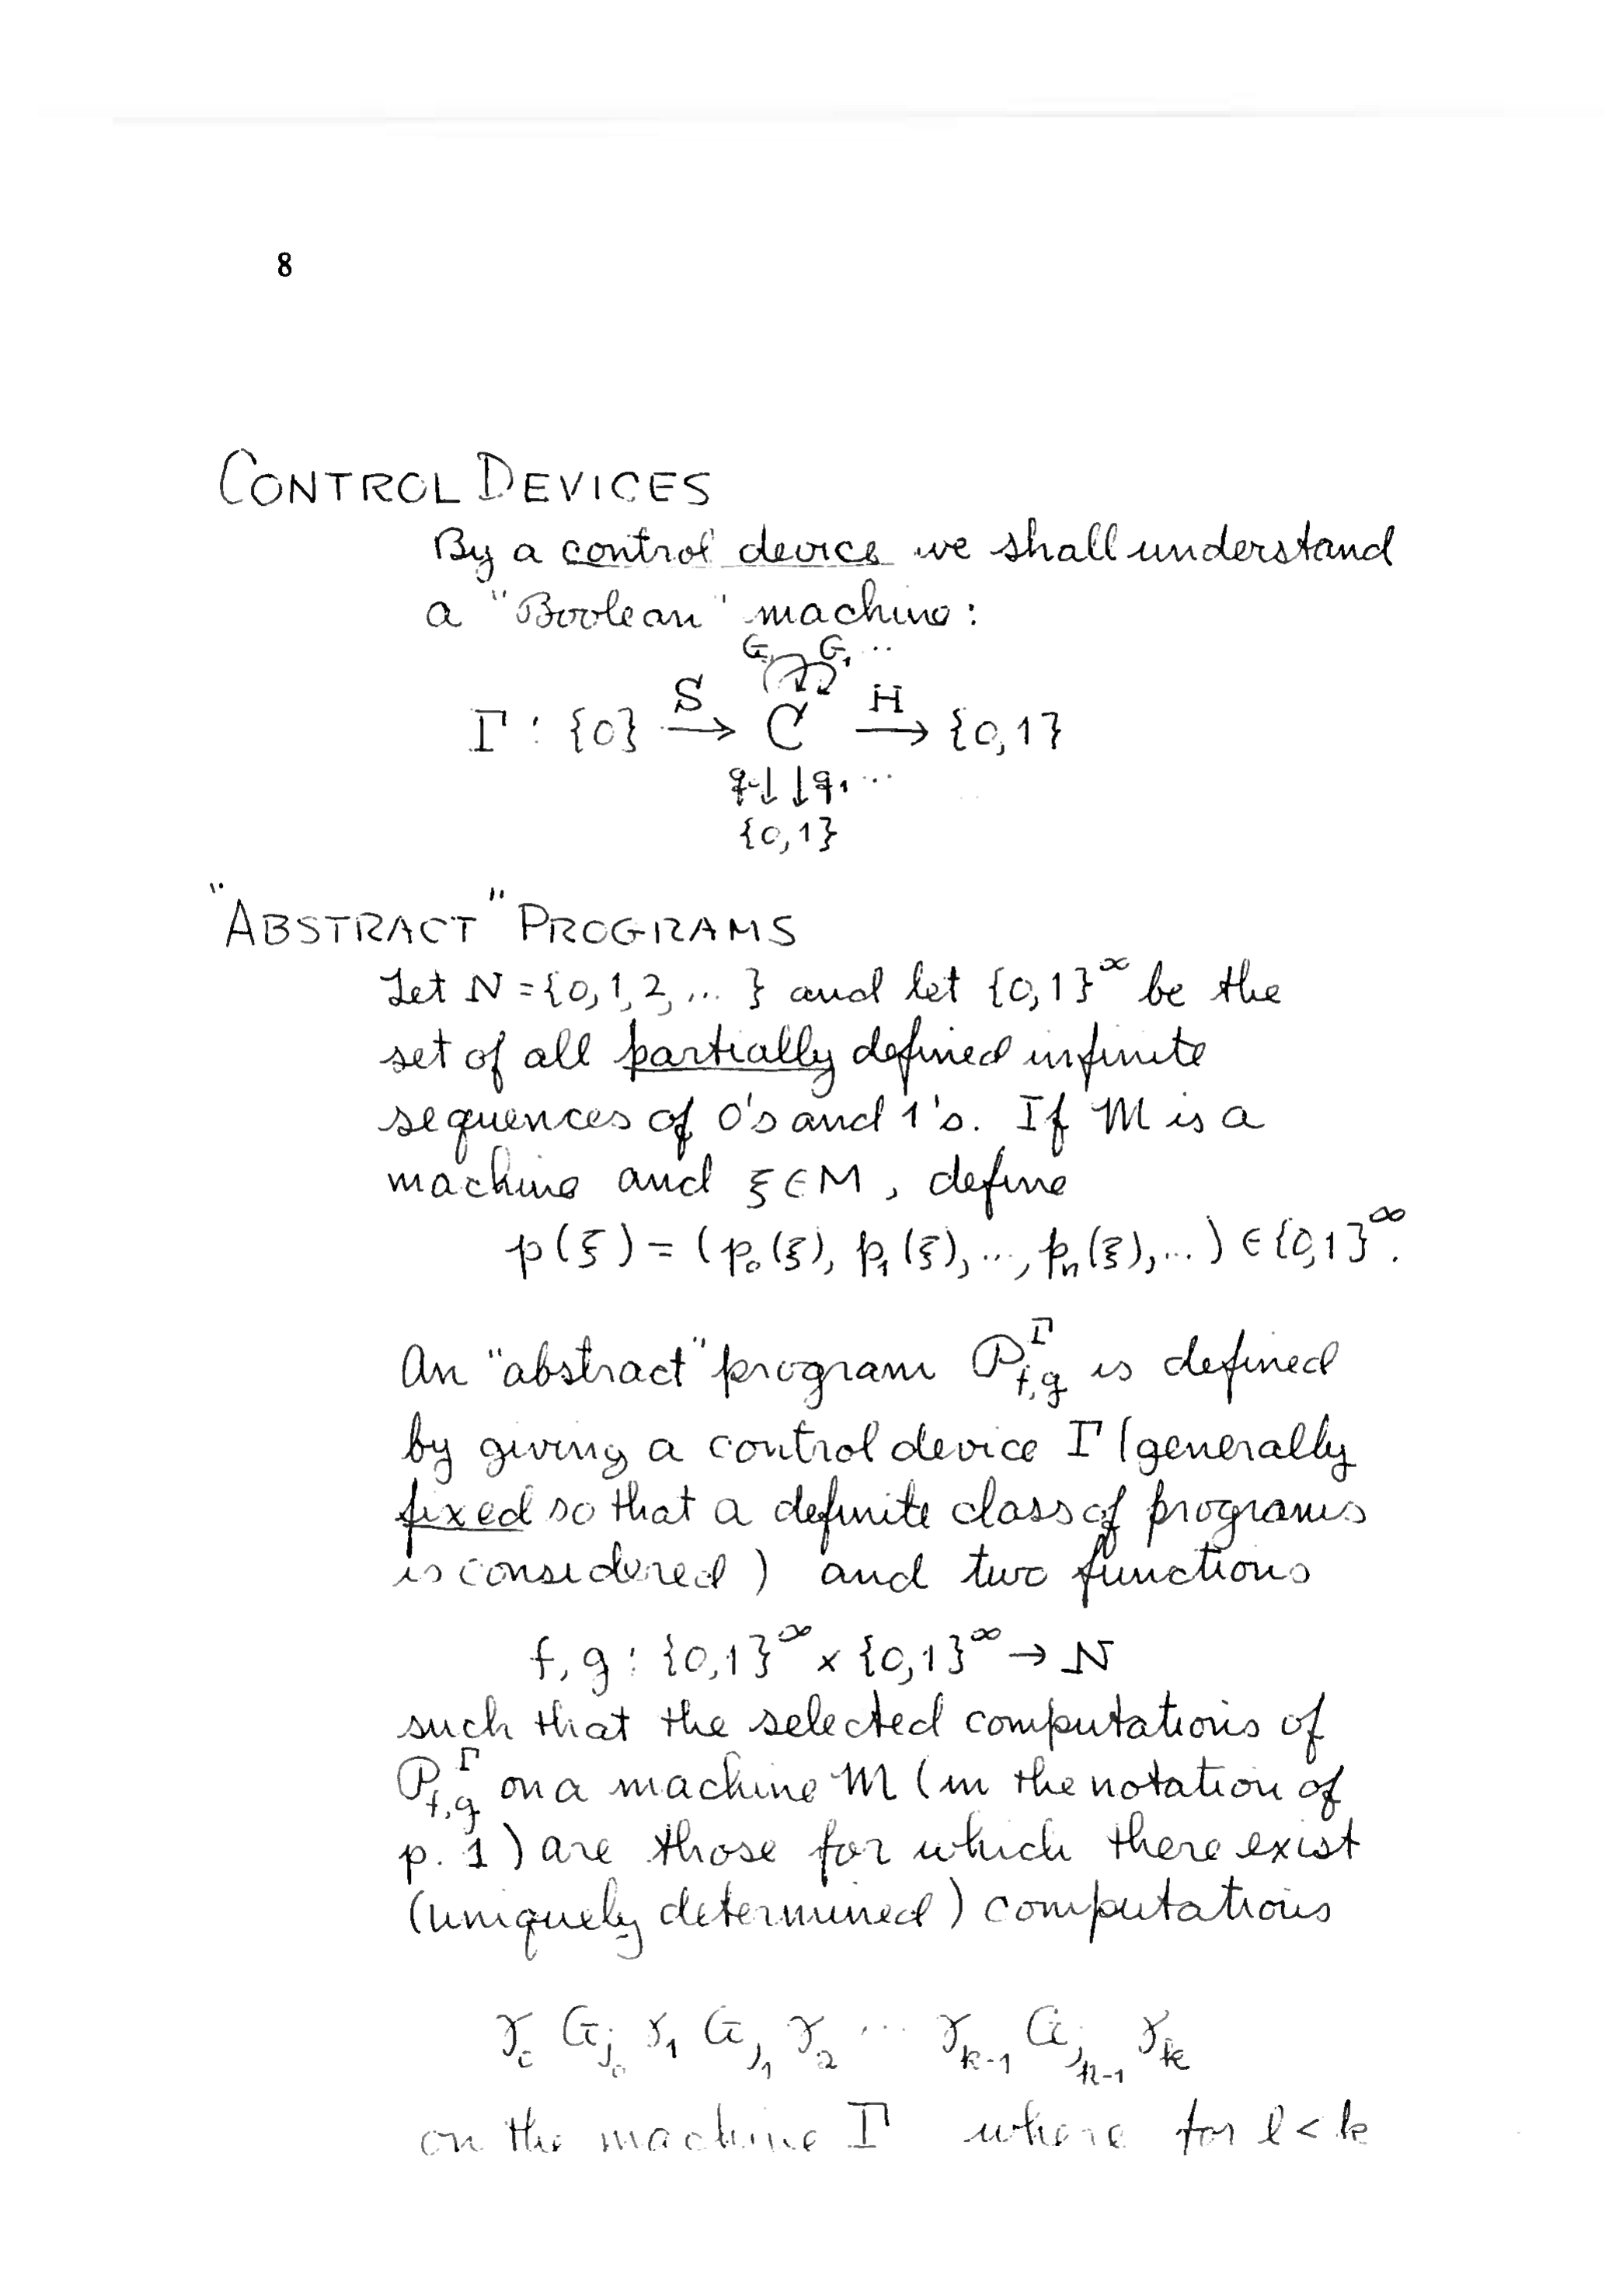 8
CONTROL DEVICES
By a control device we shall understand
a "Boolean" machine:
G₀ G₁ ...
Γ : {0} →^S C →^H {0,1}
q₀↓ ↓q₁ ...
{0,1}
"ABSTRACT" PROGRAMS
Let N = {0, 1, 2, ... } and let {0,1}^∞ be the
set of all partially defined infinite
sequences of 0's and 1's. If M is a
machine and ξ ∈ M, define
p(ξ) = (p₀(ξ), p₁(ξ), ..., pₙ(ξ), ...) ∈ {0,1}^∞.
An "abstract" program P^Γ_{f,g} is defined
by giving a control device Γ (generally
fixed so that a definite class of programs
is considered) and two functions
f, g : {0,1}^∞ × {0,1}^∞ → N
such that the selected computations of
P^Γ_{f,g} on a machine M (in the notation of
p. 1) are those for which there exist
(uniquely determined) computations
γ₀ G_{j₀} γ₁ G_{j₁} γ₂ ... γ_{k-1} G_{j_{k-1}} γ_k
on the machine Γ where for l < k